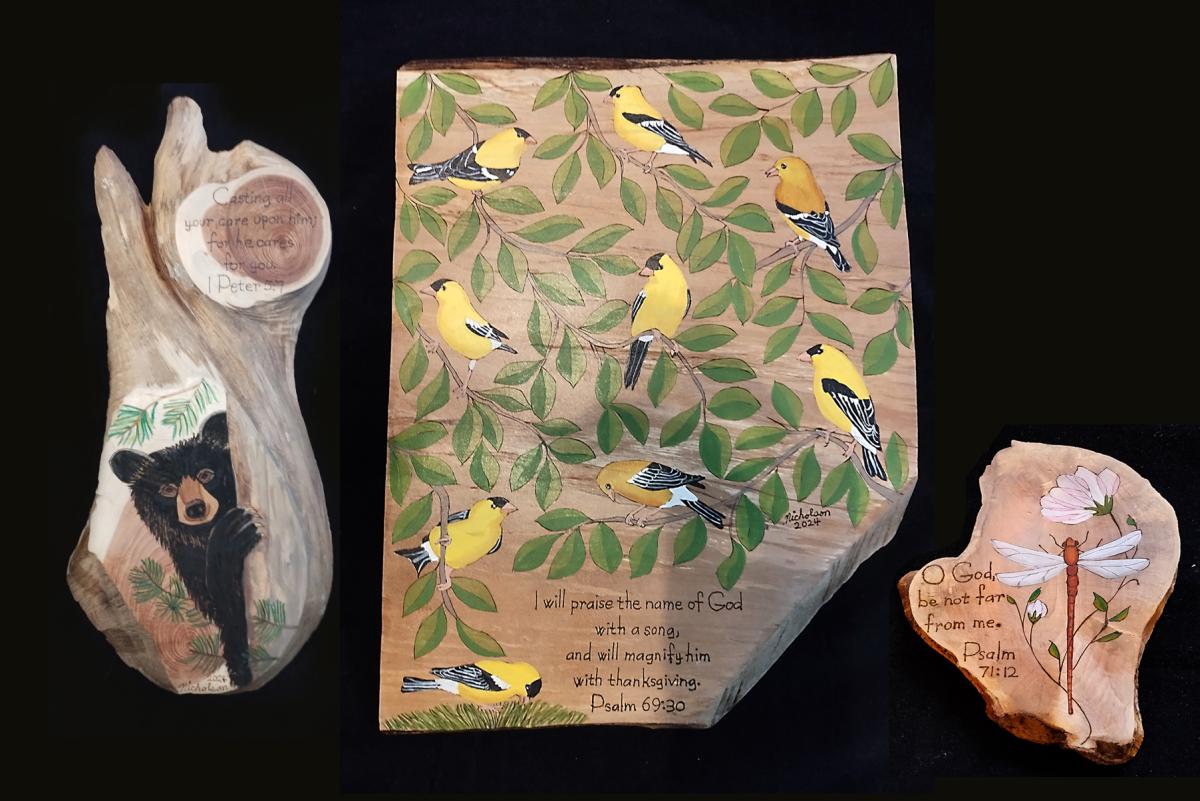 Casting all
your care upon him;
for he cares
for you.
1 Peter 5:7
2024
Nicholson
Nicholson
2024
I will praise the name of God
with a song,
and will magnify him
with thanksgiving.
Psalm 69:30
O God,
be not far
from me.
Psalm
71:12